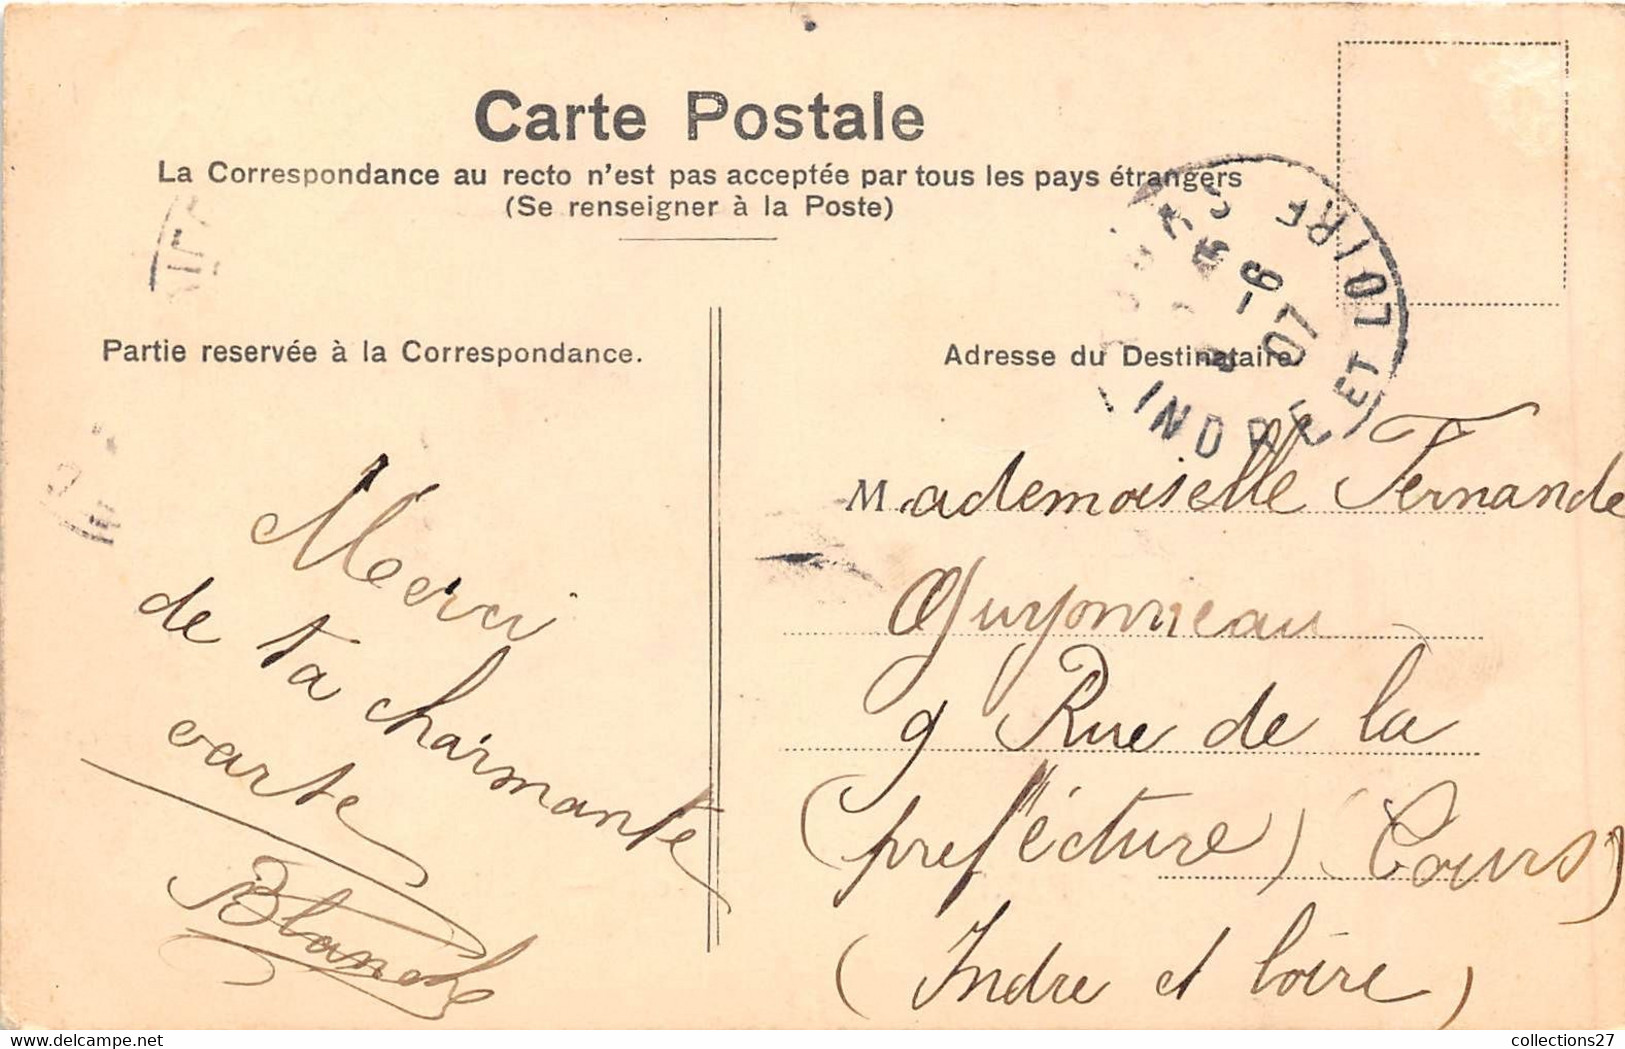 Carte Postale
La Correspondance au recto n'est pas acceptée par tous les pays étrangers
(Se renseigner à la Poste)
INDRE ET LOIRE
-6
07
Partie reservée à la Correspondance.
Merci
de ta charmante
carte
Blanche
Adresse du Destinataire
Mademoiselle Fernande
Guyonneau
9 Rue de la
(préfécture) (Tours)
(Indre et loire)
www.delcampe.net
collections27